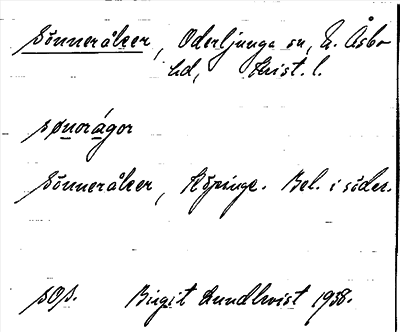 Sönneråker, Oderljunga sn, N. Åsbo
hd, Krist. l.
sønorágor
Sönneråker, Köpinge. Bel. i söder.
sOs. Birgit Lundkvist 1938.